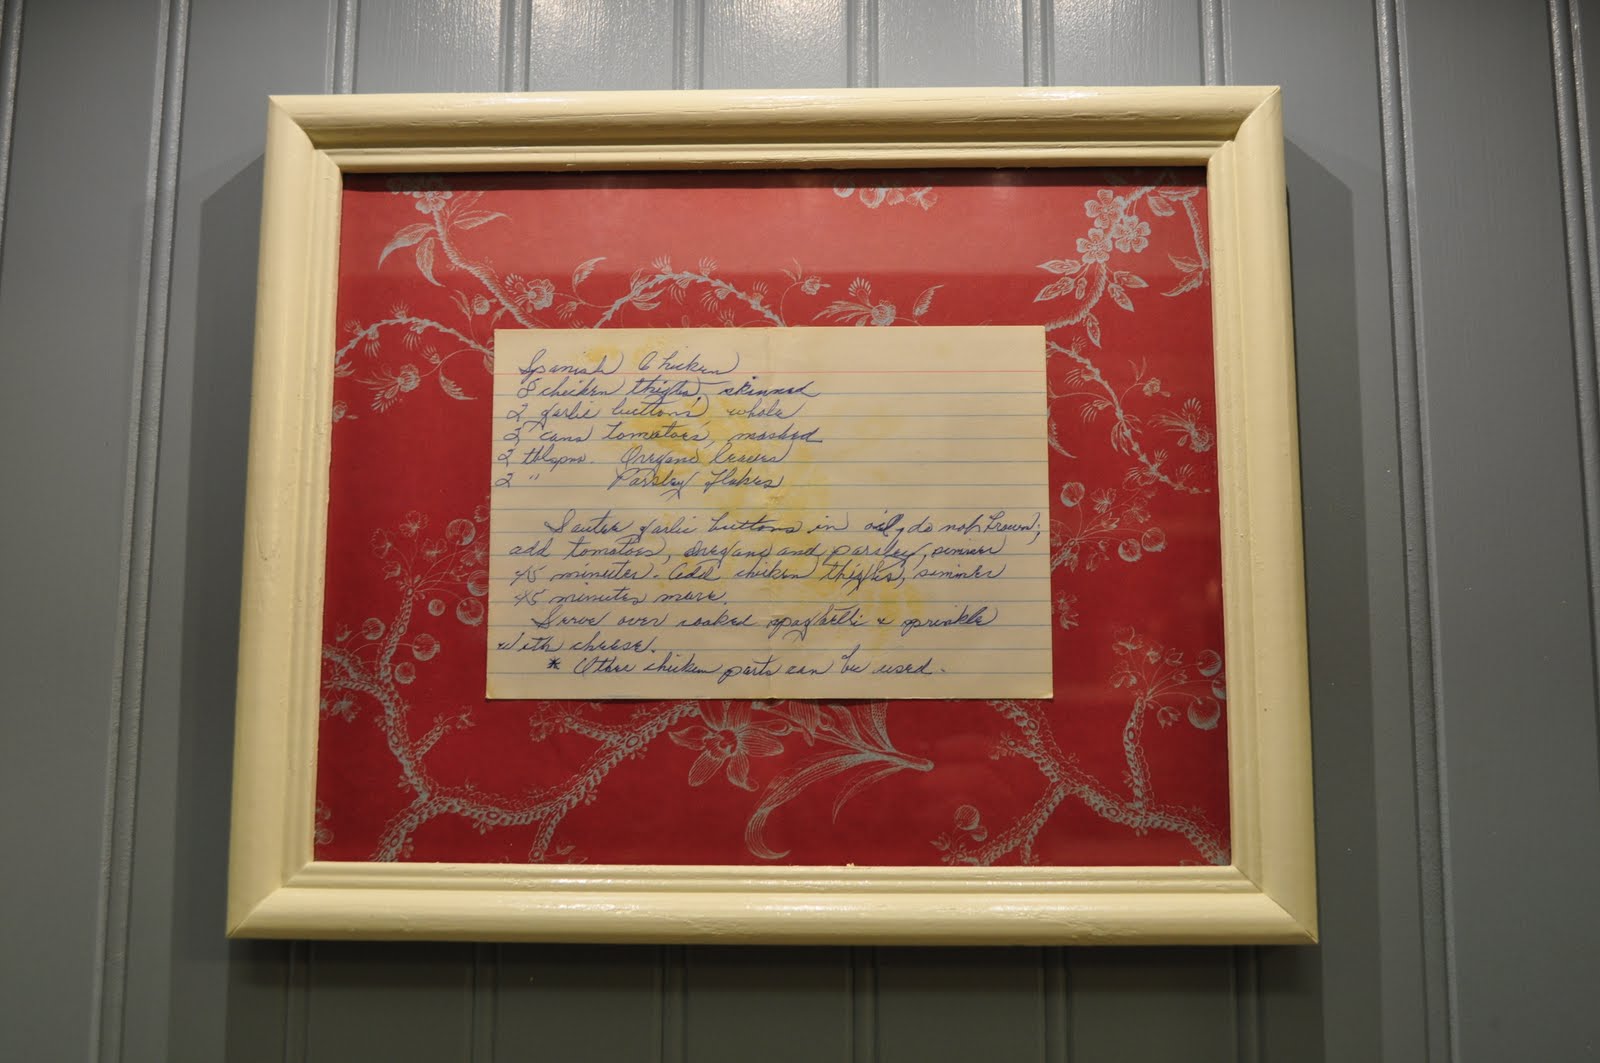 Spanish Chicken
8 chicken thighs, skinned
2 garlic buttons, whole
2 cans tomatoes, mashed
2 tblspns. Oregano leaves
2 " Parsley flakes
Sautee garlic buttons in oil, do not brown;
add tomatoes, oregano and parsley, simmer
45 minutes. Add chicken thighs, simmer
45 minutes more.
Serve over cooked spaghetti & sprinkle
with cheese.
* Other chicken parts can be used.